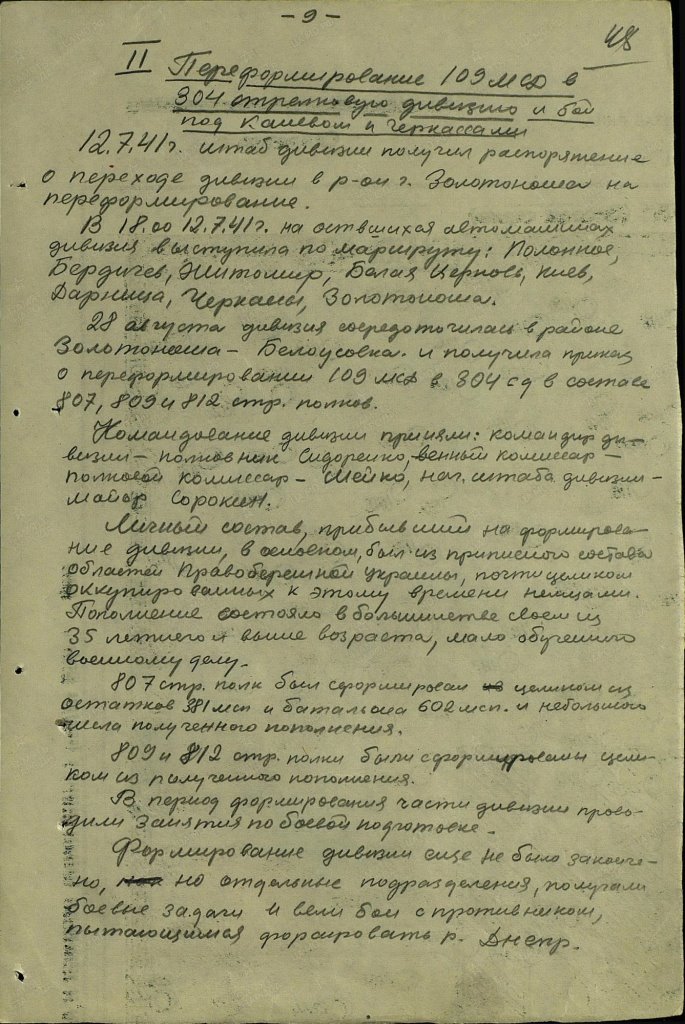 - 9 -
48
II Переформирование 109 мсд в
304 стрелковую дивизию и бои
под Каневом и Черкассами
12.7.41 г. штаб дивизии получил распоряжение
о переходе дивизии в р-он г. Золотоноша на
переформирование.
В 18.00 12.7.41 г. на оствшихся автомашинах
дивизия выступила по маршруту: Полонное,
Бердичев, Житомир, Белая Церковь, Киев,
Дарница, Черкассы, Золотоноша.
28 августа дивизия сосредоточилась в районе
Золотоноша - Белоусовка. и получила приказ
о переформировании 109 мсд в 304 сд в составе
807, 809 и 812 стр. полков.
Командование дивизии приняли: командир ди-
визии - полковник Сидоренко, венный комиссар -
полковой комиссар - Шейко, нач. штаба дивизии -
майор Сорокин.
Личный состав, прибывший на формирова-
ние дивизии, в основном, был из приписного состава
областей Правобережной Украины, почти целиком
оккупированных к этому времени немцами.
Пополнение состояло в большинстве своем из
35 летнего и выше возраста, мало обученного
военному делу.
807 стр. полк был сформирован целиком из
остатков 381 мсп и батальона 602 мсп. и небольшого
числа полученного пополнения.
809 и 812 стр. полки были сформированы цели-
ком из полученного пополнения.
В период формирования части дивизии прово-
дили занятия по боевой подготовке.
Формирование дивизии еще не было закончe-
но, но отдельные подразделения, получали
боевые задачи и вели бои с противником,
пытающимся форсировать р. Днепр.